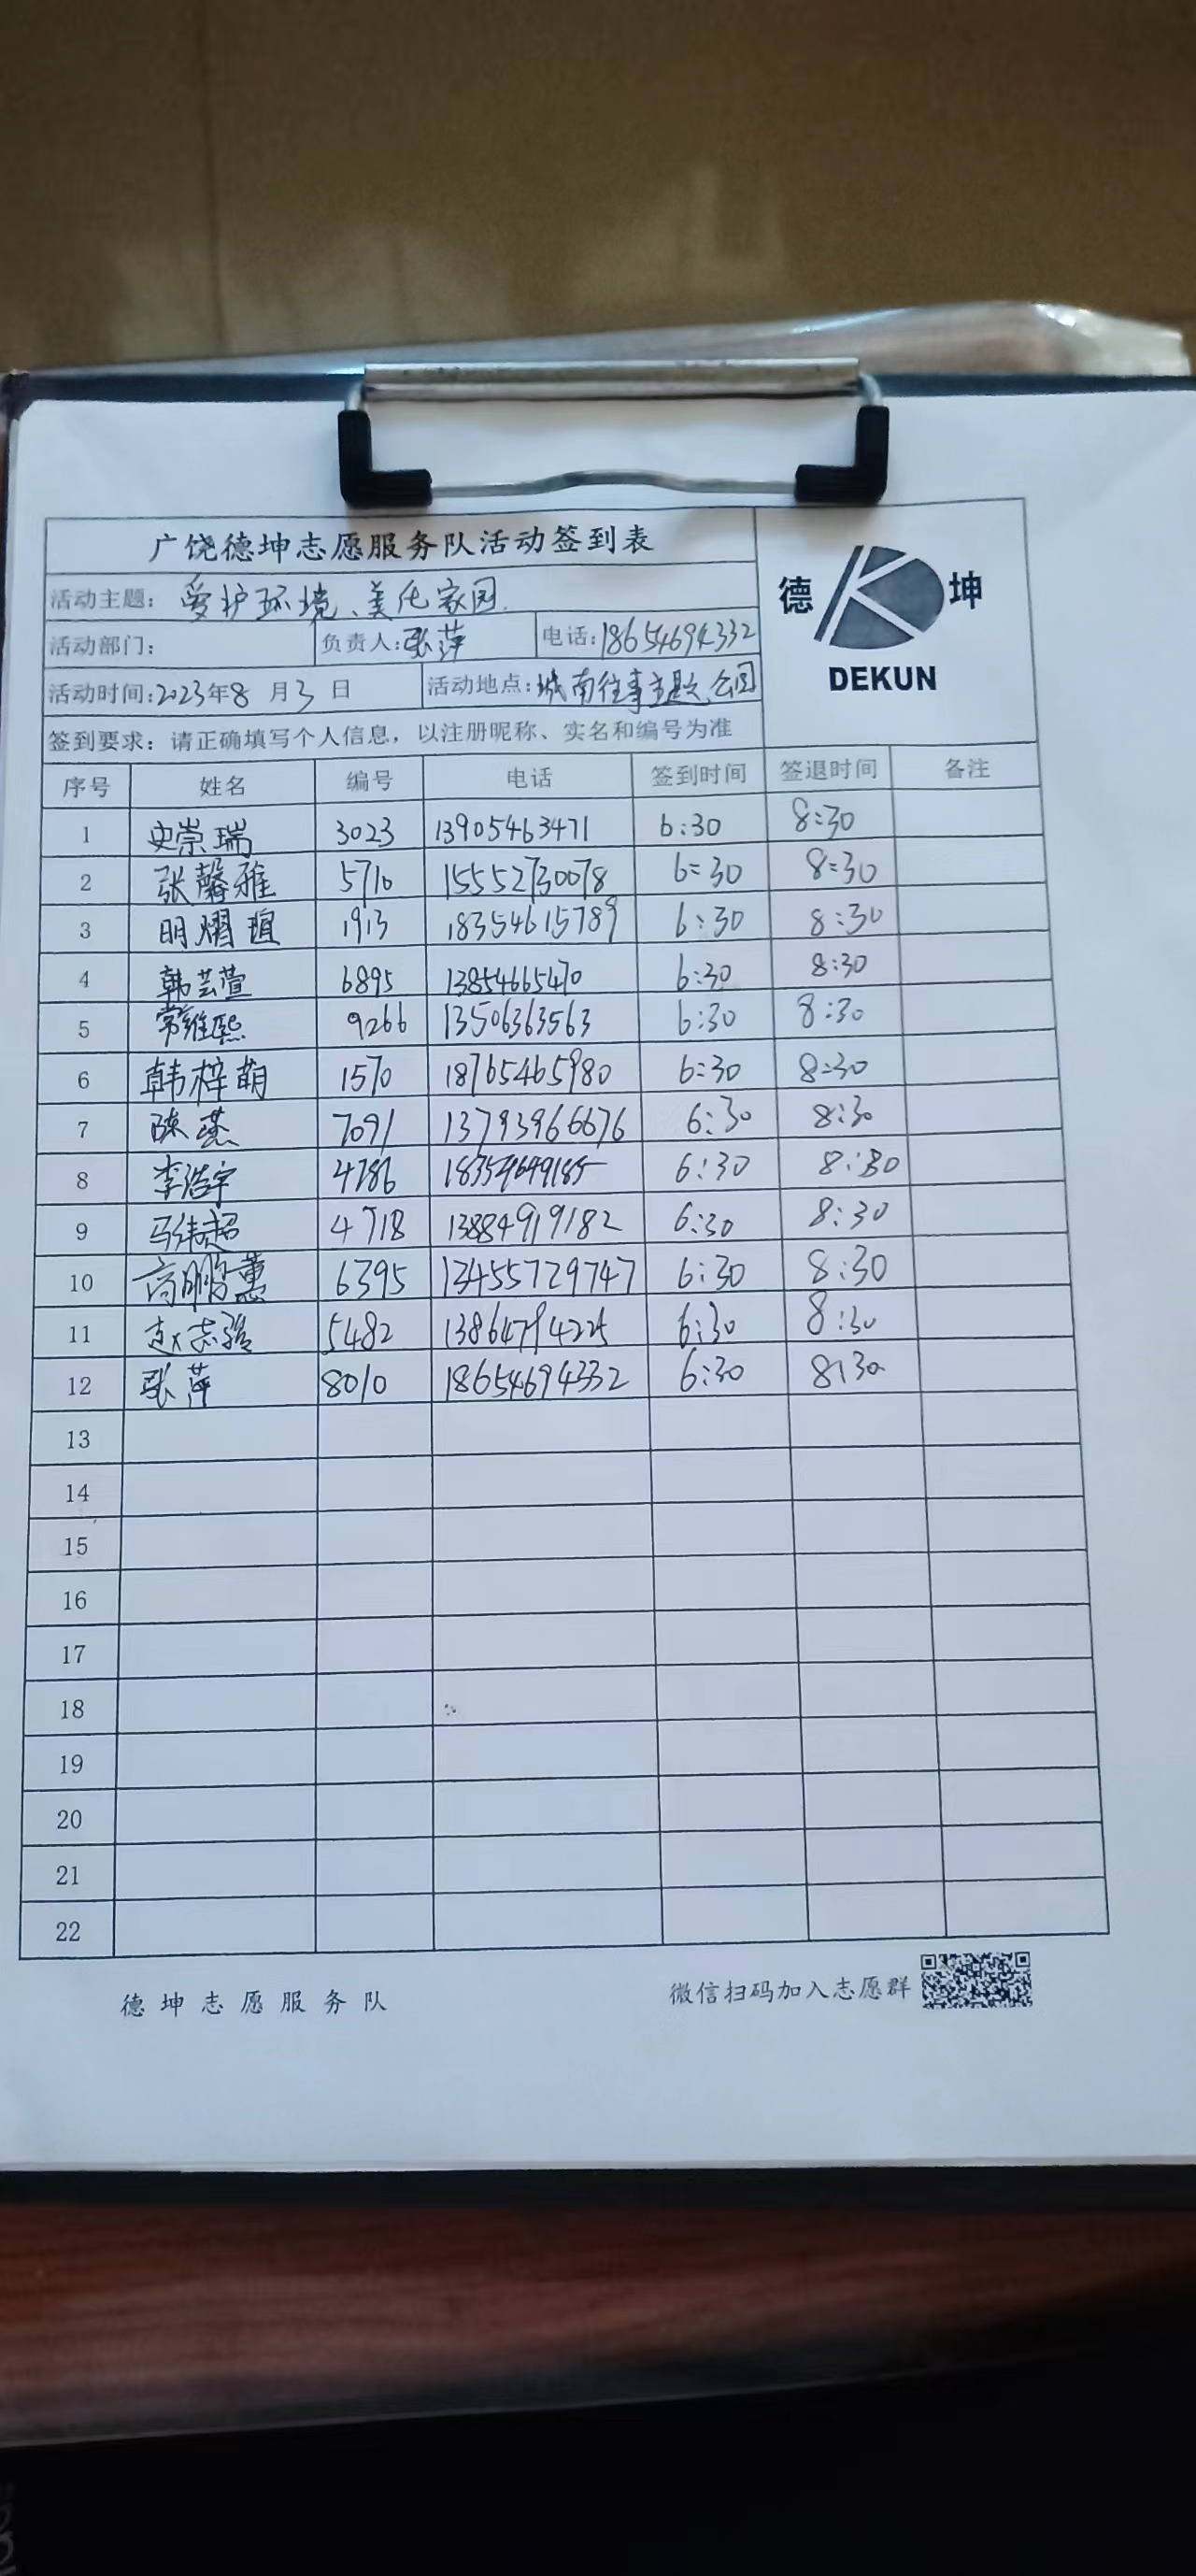 广饶德坤志愿服务队活动签到表
德 坤
DEKUN
活动主题：爱护环境、美化家园.
活动部门： 负责人：张萍 电话：18654694332
活动时间：2023年8月3日 活动地点：城南往事主题公园
签到要求：请正确填写个人信息，以注册昵称、实名和编号为准
序号 姓名 编号 电话 签到时间 签退时间 备注
1 史崇瑞 3023 13905463471 6:30 8:30
2 张馨雅 5710 15552730078 6:30 8:30
3 明熠瑄 1913 18354615789 6:30 8:30
4 韩芸萱 6895 13854665470 6:30 8:30
5 常维熙 9266 13506363563 6:30 8:30
6 韩梓萌 1570 18765465980 6:30 8:30
7 陈燕 7091 13793966676 6:30 8:30
8 李浩宇 4786 6:30 8:30
9 马纬超 4718 13884919182 6:30 8:30
10 高鹏蕙 6395 13455729747 6:30 8:30
11 赵志强 5482 13864794225 6:30 8:30
12 张萍 8010 18654694332 6:30 8:30
13
14
15
16
17
18
19
20
21
22
德坤志愿服务队 微信扫码加入志愿群